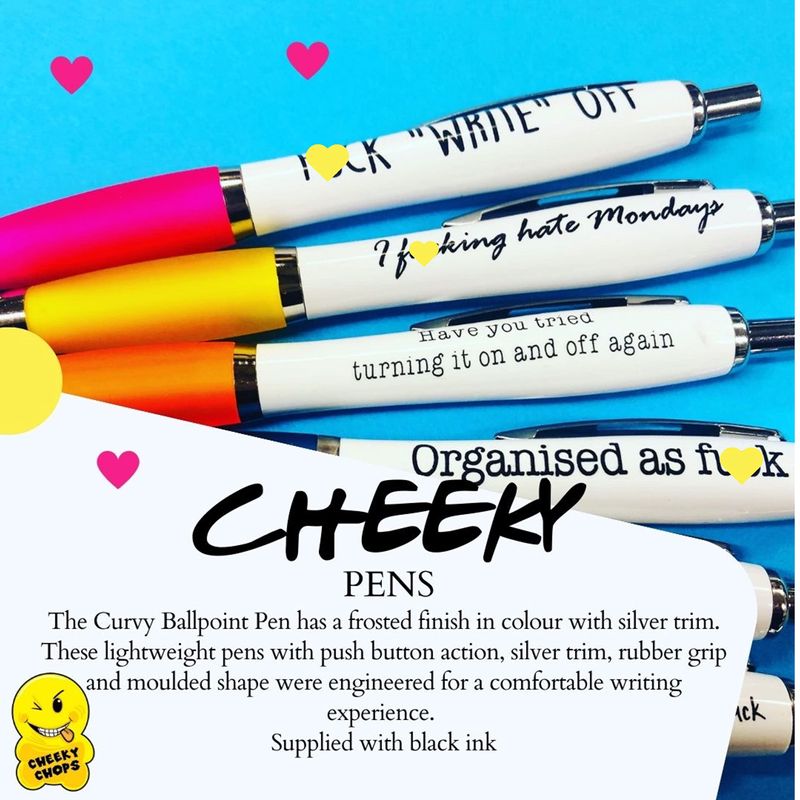 "WRITE" OFF
I f king hate Mondays
Have you tried
turning it on and off again
Organised as fu k
CHEEKY
PENS
The Curvy Ballpoint Pen has a frosted finish in colour with silver trim.
These lightweight pens with push button action, silver trim, rubber grip
and moulded shape were engineered for a comfortable writing
experience.
Supplied with black ink
CHEEKY
CHOPS